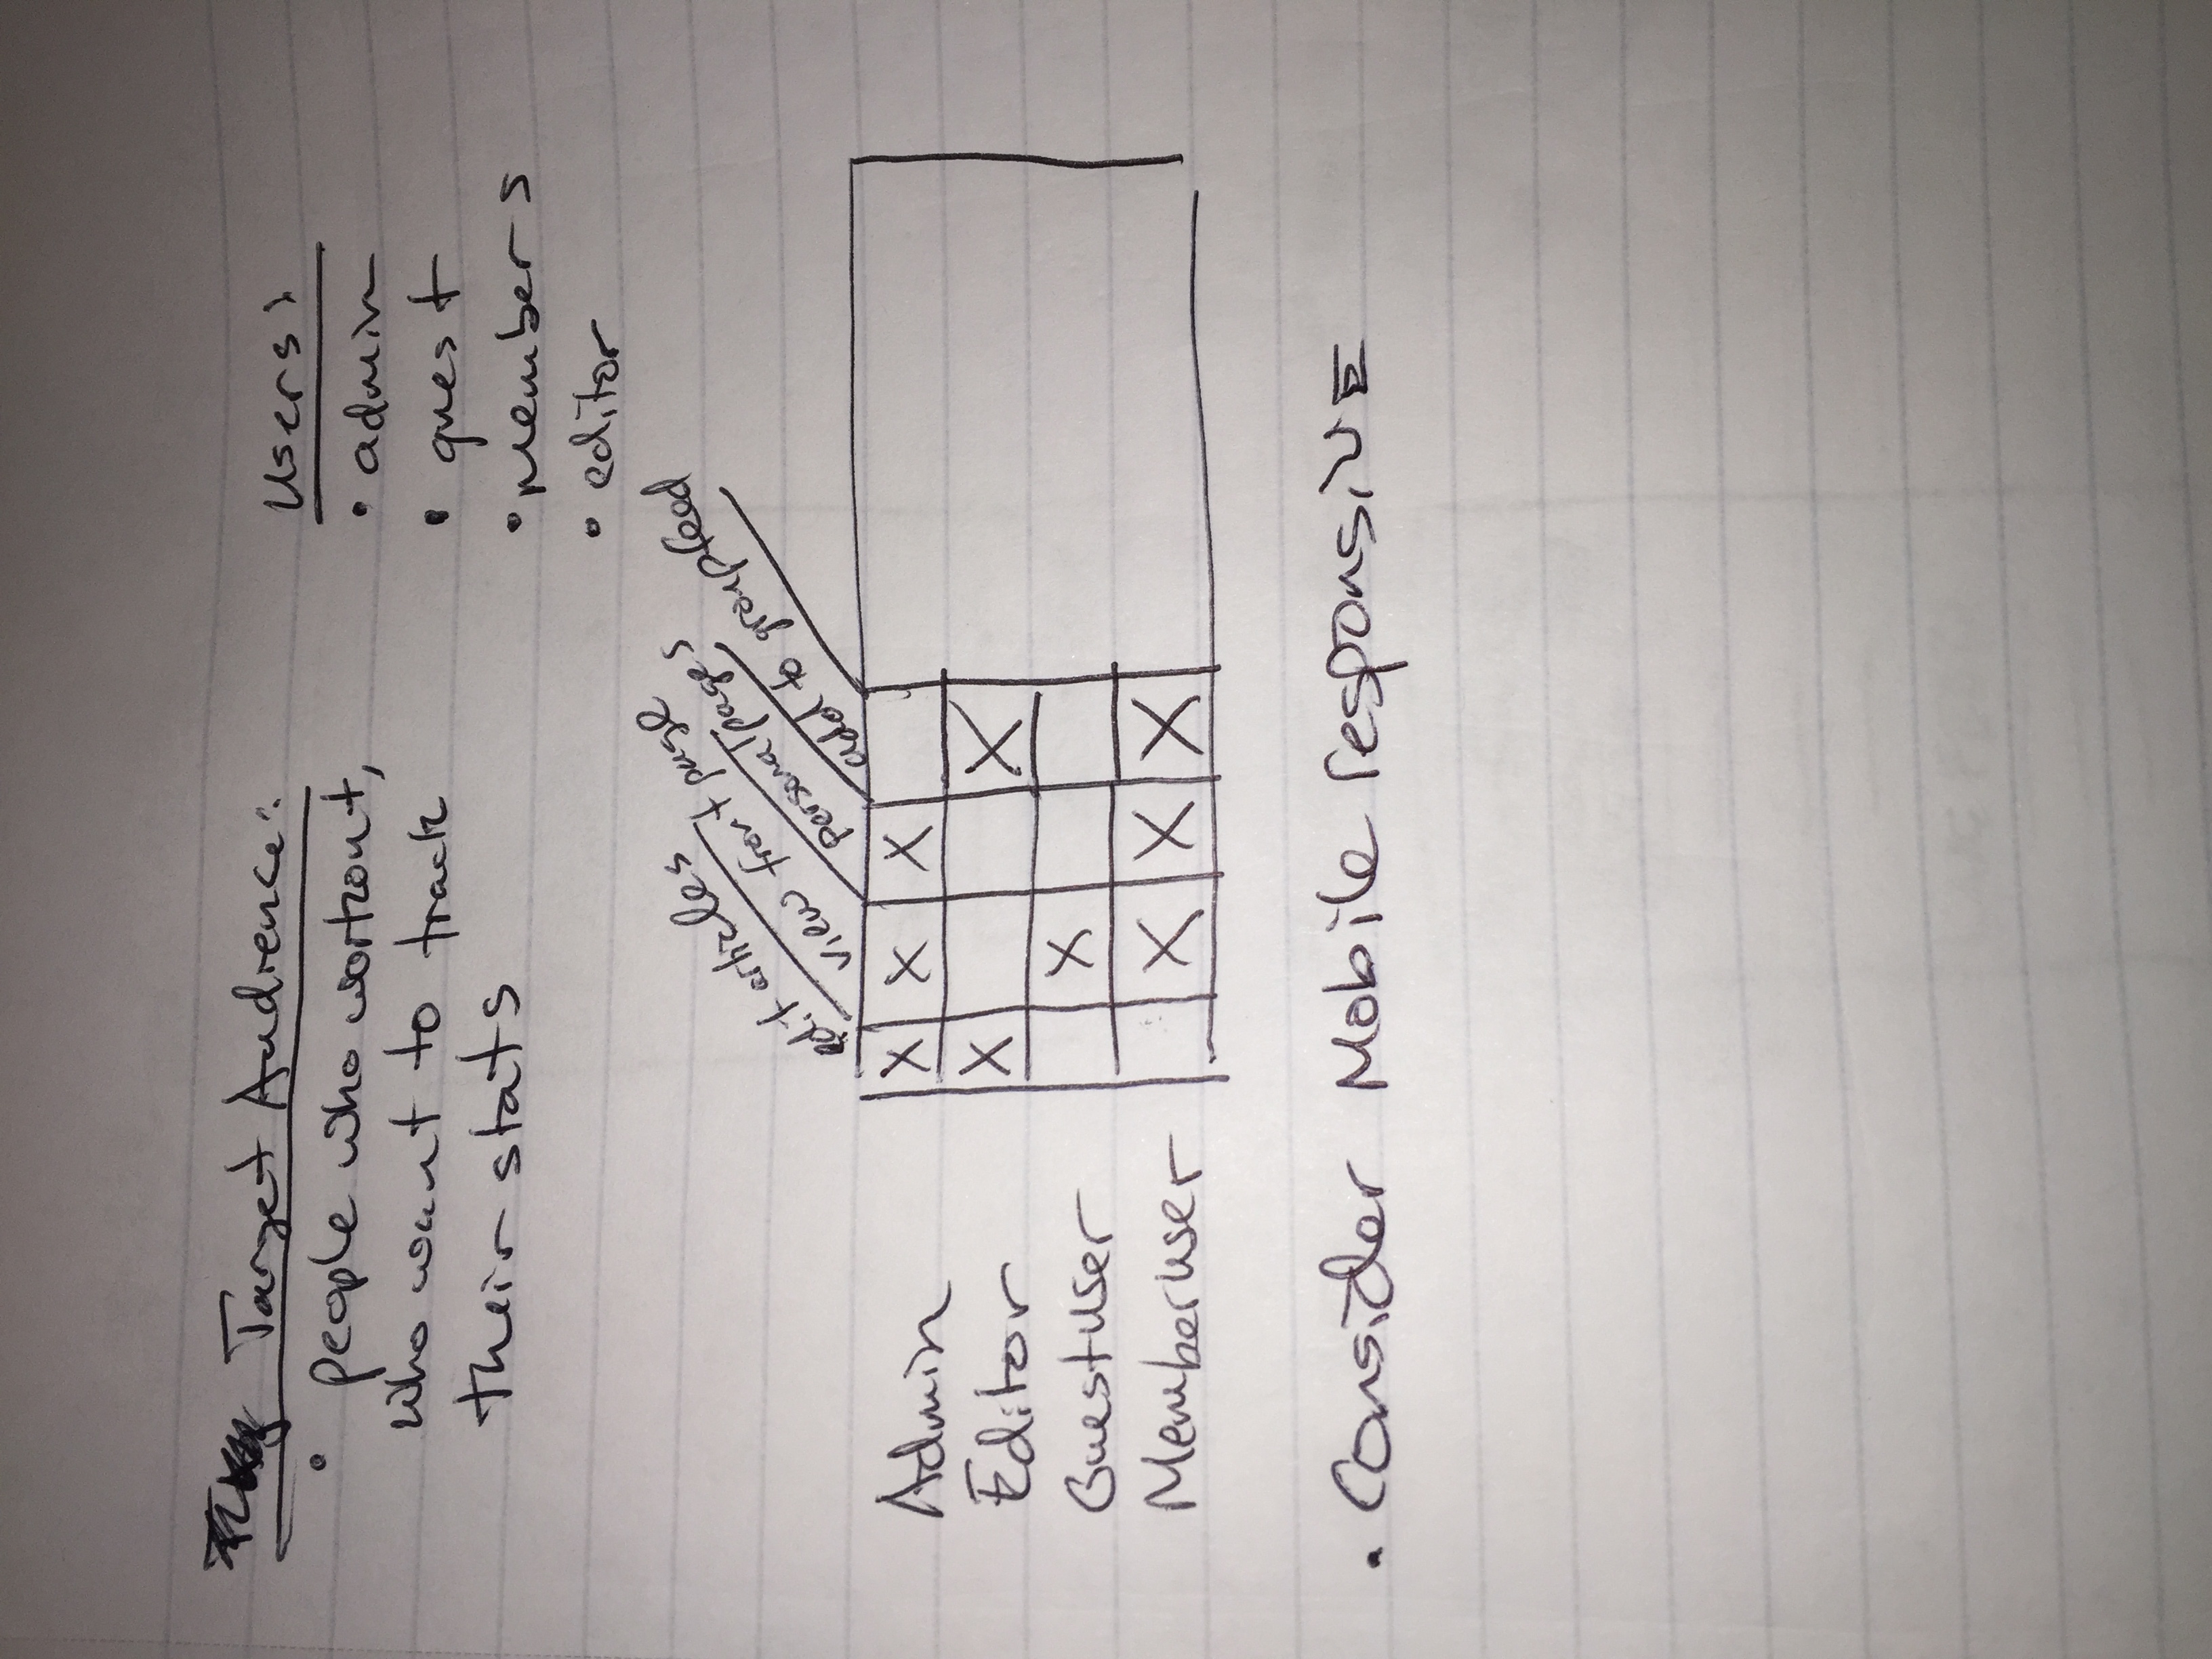 Target Audience:
• people who workout,
who want to track
their stats
Users:
• admin
• guest
• members
• editor
edit articles
view front page
personal pages
add to groupfeed
Admin X X X
Editor X X
Guestuser X
Memberuser X X X
• Consider Mobile responsive